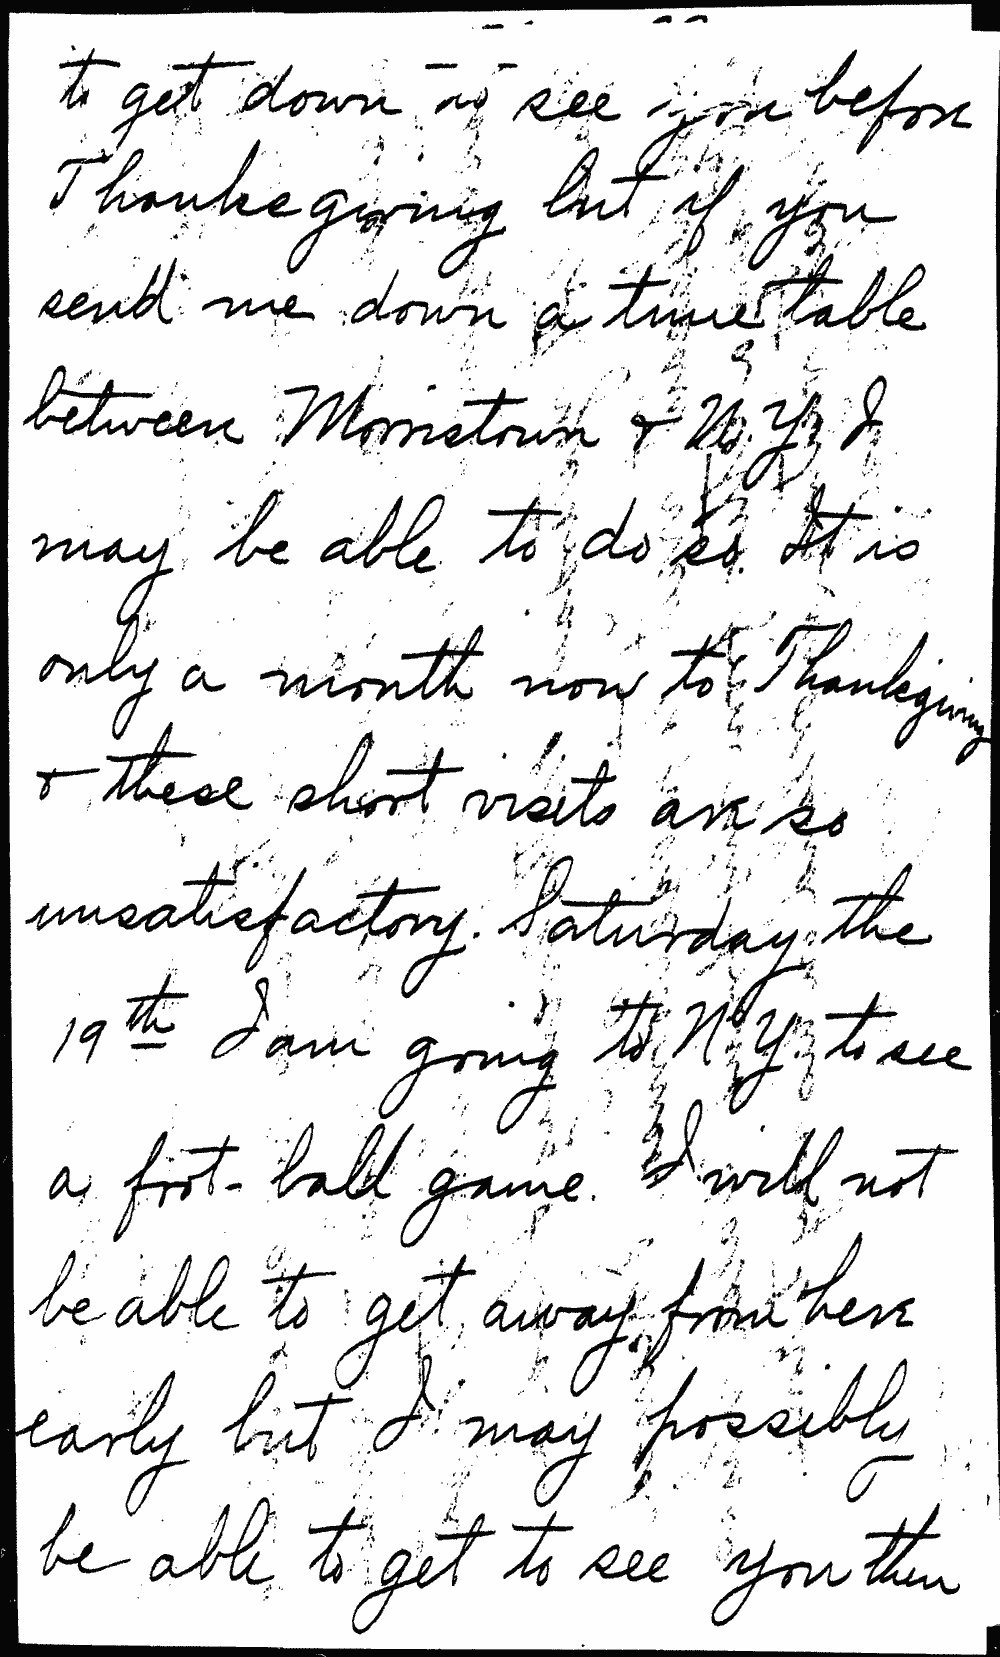 to get down to see you before
Thanksgiving but if you
send me down a time table
between Morristown & N.Y. I
may be able to do so. It is
only a month now to Thanksgiving
& these short visits are so
unsatisfactory. Saturday the
19th I am going to N.Y. to see
a foot-ball game. I will not
be able to get away from here
early but I may possibly
be able to get to see you then